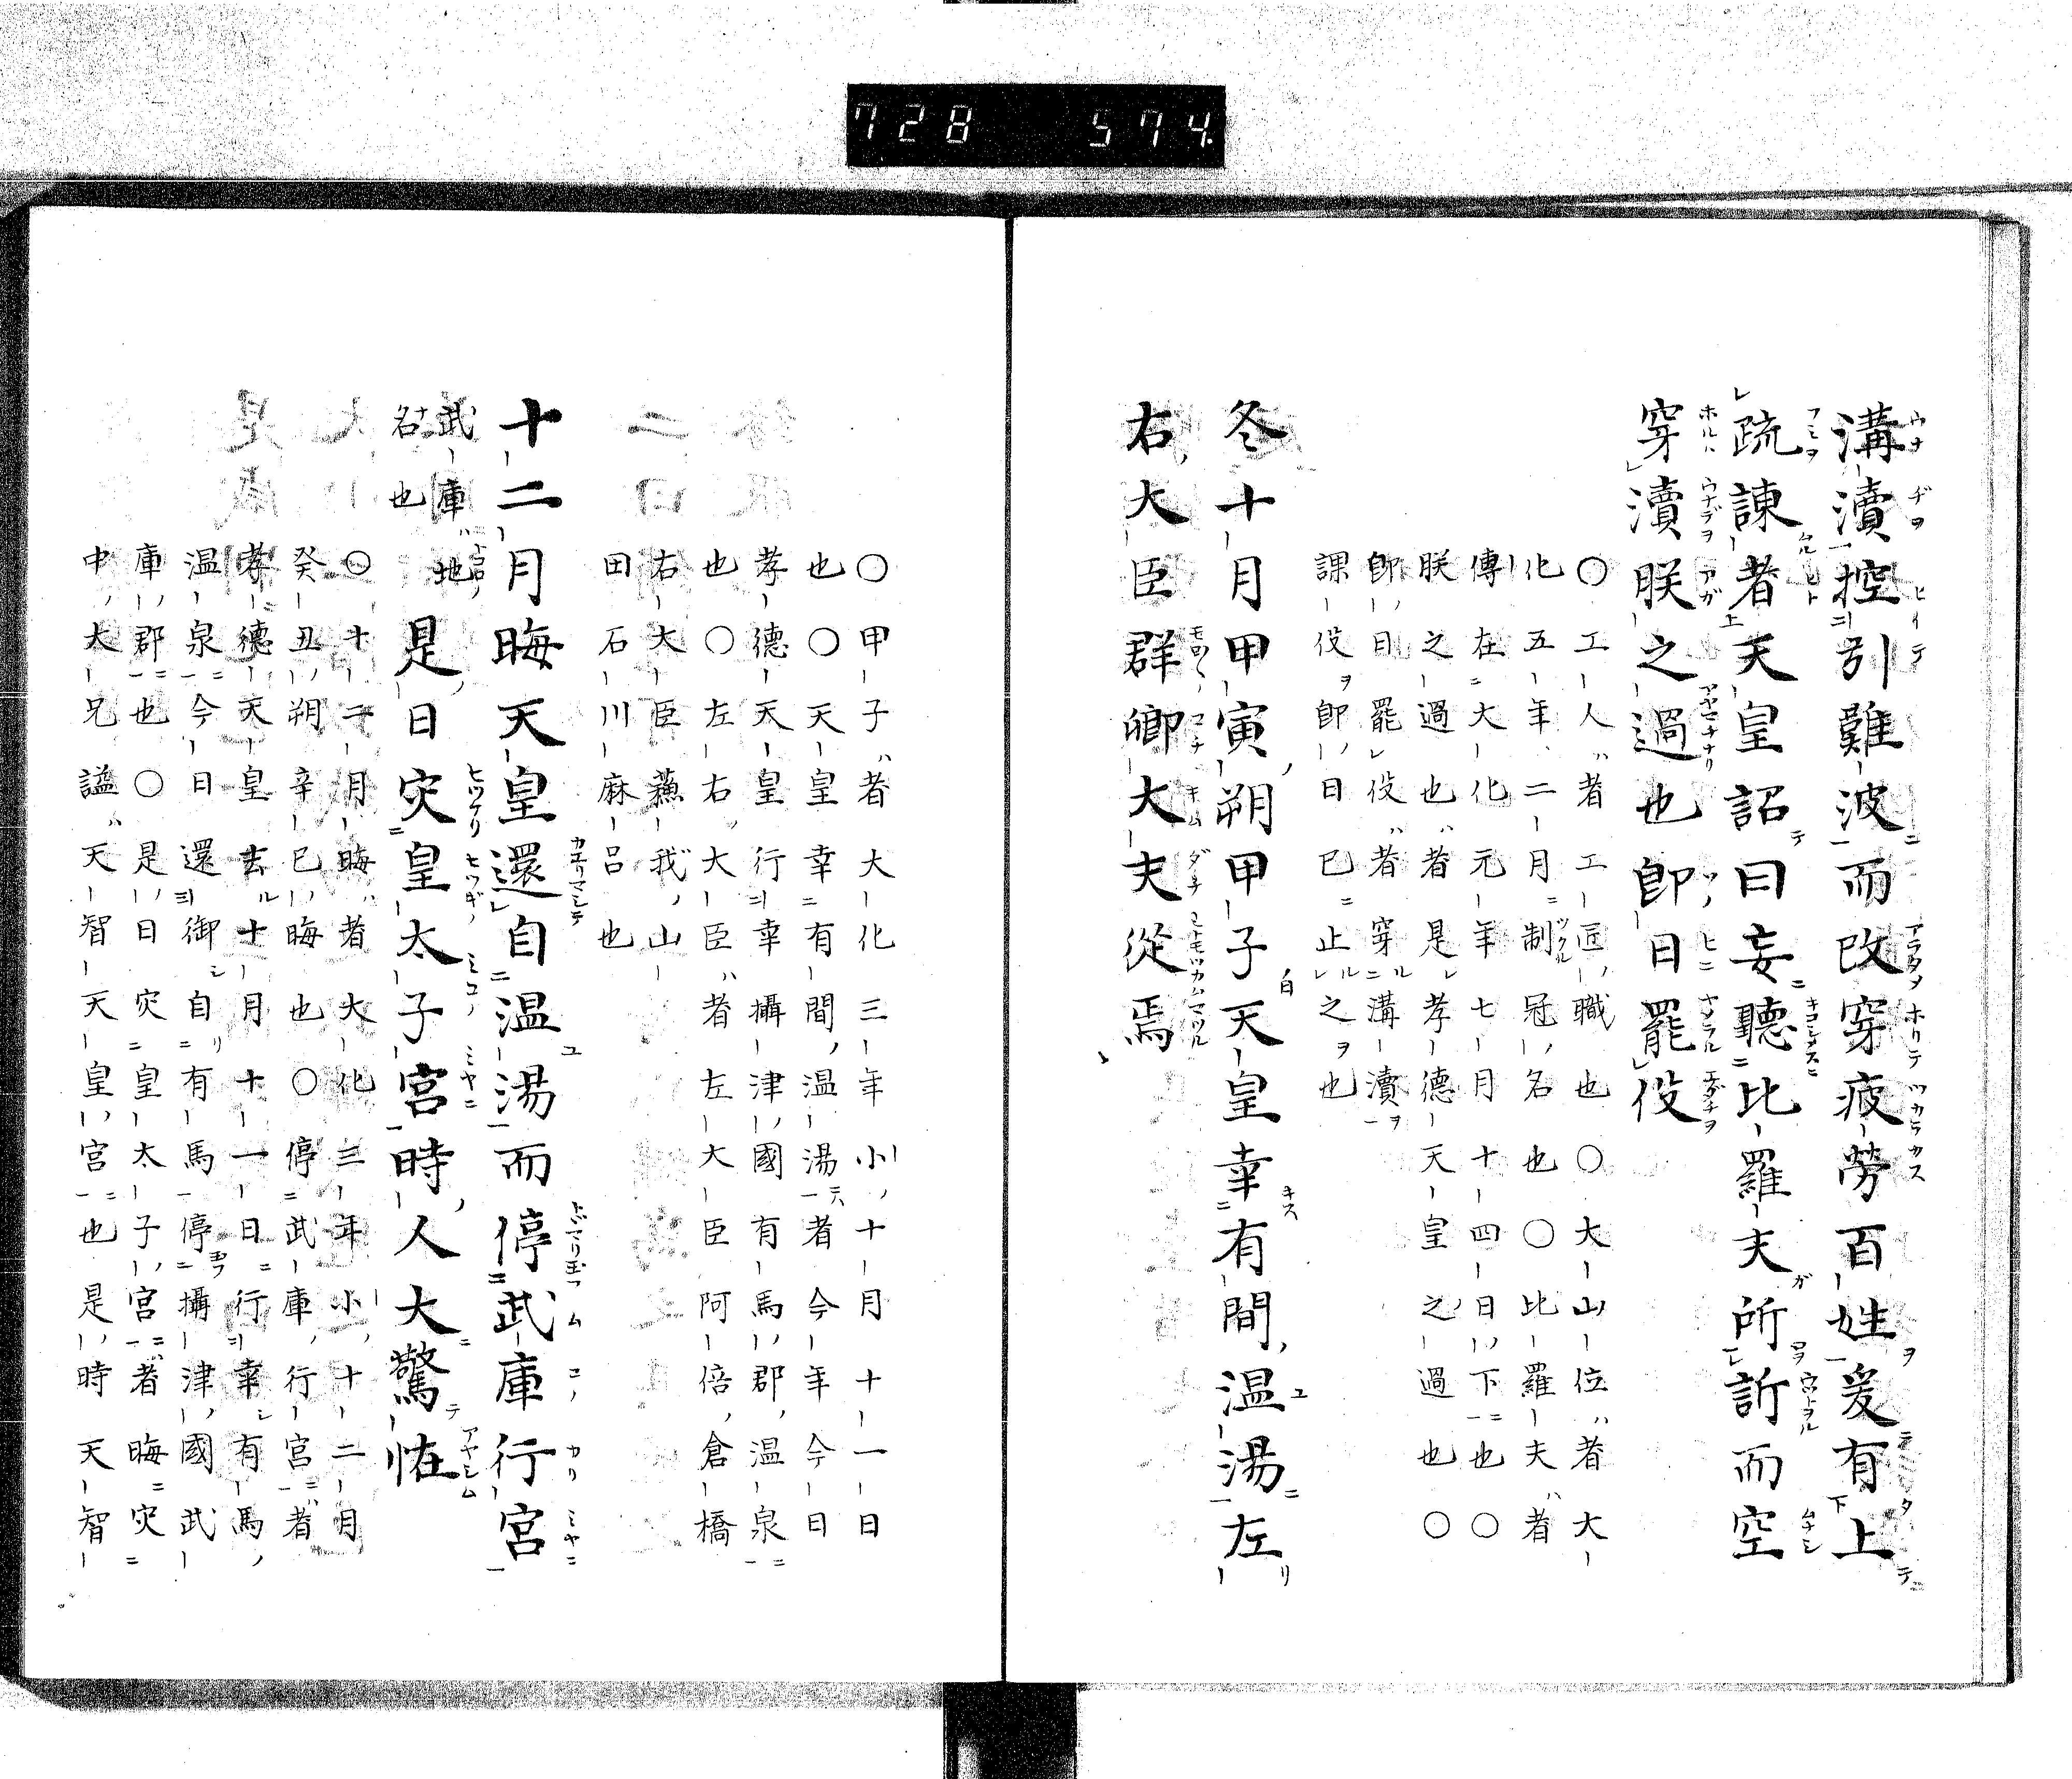 728 574.
溝瀆控引難波而改穿疲勞百姓爰有上
疏諌者天皇詔曰妄聽比羅夫所訢而空
穿瀆朕之過也卽日罷役
〇工人者工匠職也〇大山位者大
化五年二月制冠名也〇比羅夫者
傳在大化元年七月十四日下也〇
朕之過也者是孝德天皇之過也〇
卽日罷役者穿溝瀆
課役卽日已止之也
冬十月甲寅朔甲子天皇幸有間温湯左
右大臣群卿大夫從焉
〇甲子者大化三年小十月十一日
也〇天皇幸有間温湯者今年今日
孝德天皇行幸攝津國有馬郡温泉
也〇左右大臣者左大臣阿倍倉橋
右大臣蘓我山
田石川麻呂也
十二月晦天皇還自温湯而停武庫行宮
武庫地
名也
是日灾皇太子宮時人大驚恠
〇十二月晦者大化三年小十二月
癸丑朔辛巳晦也〇停武庫行宮者
孝德天皇去十月十一日行幸有馬
温泉今日還御自有馬停攝津國武
庫郡也〇是日灾皇太子宮者晦灾
中大兄謚天智天皇宮也是時天智